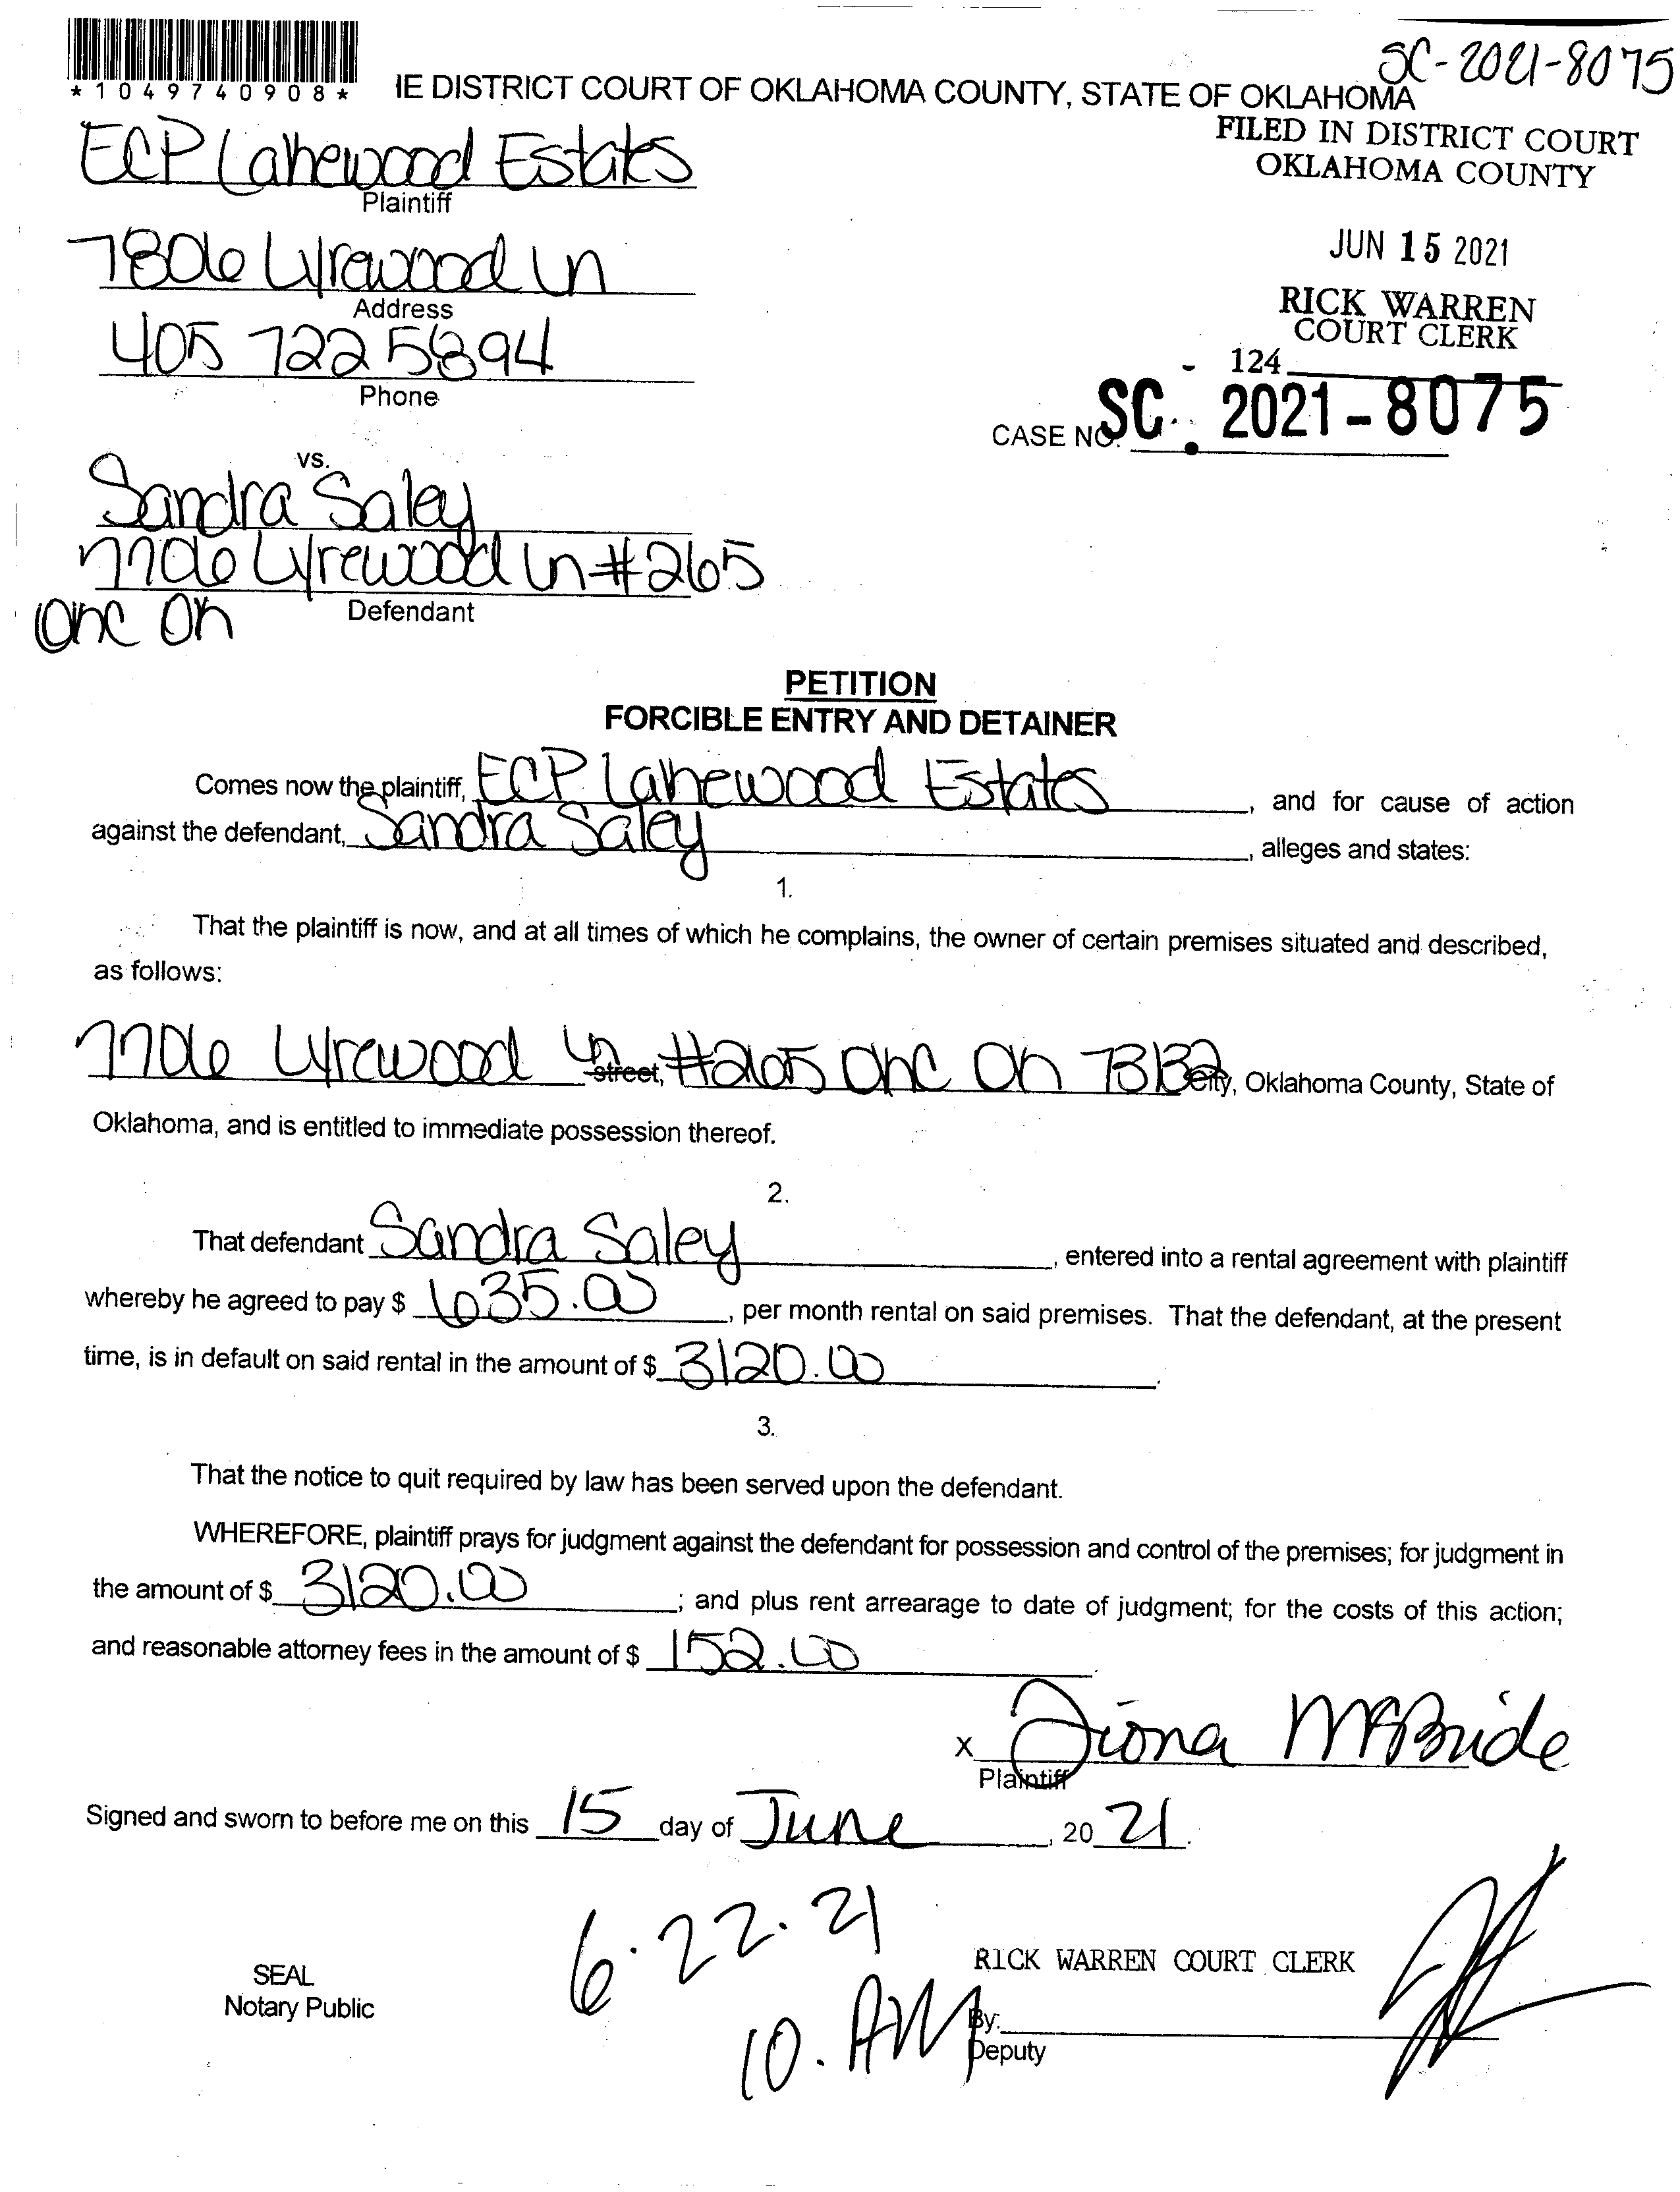 SC-2021-8075
*1049740908*
IE DISTRICT COURT OF OKLAHOMA COUNTY, STATE OF OKLAHOMA
FILED IN DISTRICT COURT
OKLAHOMA COUNTY
ECP Lakewood Estates
Plaintiff
JUN 15 2021
7806 Lyrewood Ln
Address
RICK WARREN
COURT CLERK
405 722 5894
Phone
124
CASE NO. SC. 2021-8075
vs.
Sandra Saley
7706 Lyrewood Ln #265
Defendant
OKC OK
PETITION
FORCIBLE ENTRY AND DETAINER
Comes now the plaintiff, ECP Lakewood Estates, and for cause of action
against the defendant, Sandra Saley, alleges and states:
1.
That the plaintiff is now, and at all times of which he complains, the owner of certain premises situated and described,
as follows:
7706 Lyrewood Ln street, #265 OKC OK 73132 city, Oklahoma County, State of
Oklahoma, and is entitled to immediate possession thereof.
2.
That defendant Sandra Saley, entered into a rental agreement with plaintiff
whereby he agreed to pay $ 635.00, per month rental on said premises. That the defendant, at the present
time, is in default on said rental in the amount of $ 3120.00.
3.
That the notice to quit required by law has been served upon the defendant.
WHEREFORE, plaintiff prays for judgment against the defendant for possession and control of the premises; for judgment in
the amount of $ 3120.00; and plus rent arrearage to date of judgment; for the costs of this action;
and reasonable attorney fees in the amount of $ 152.00.
x Fiona McBride
Plaintiff
Signed and sworn to before me on this 15 day of June, 20 21.
6.22.21
10. AM
SEAL
Notary Public
RICK WARREN COURT CLERK
By:
Deputy